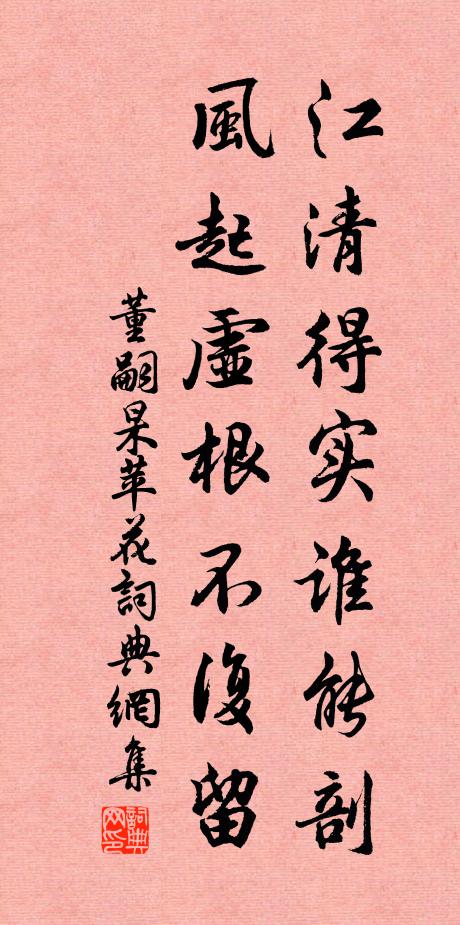 江清得实谁能剖
風起虛根不復留
董嗣杲苹花詞典網集
詞典網印